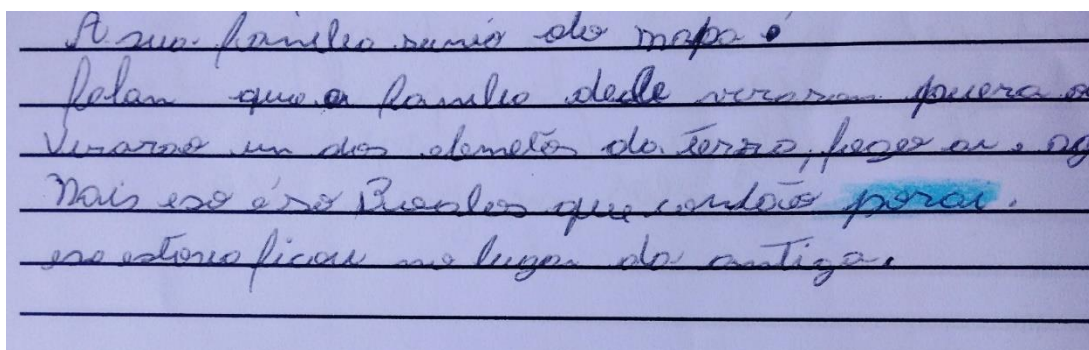 A sua familia sumio do mapa e
falan que a familia dede viraran puera
Virarao un dos elemetos da terra, fogo ar e ag
Mais eso é so Boatos que contão porai.
esa estoria ficou no lugar da antiga.